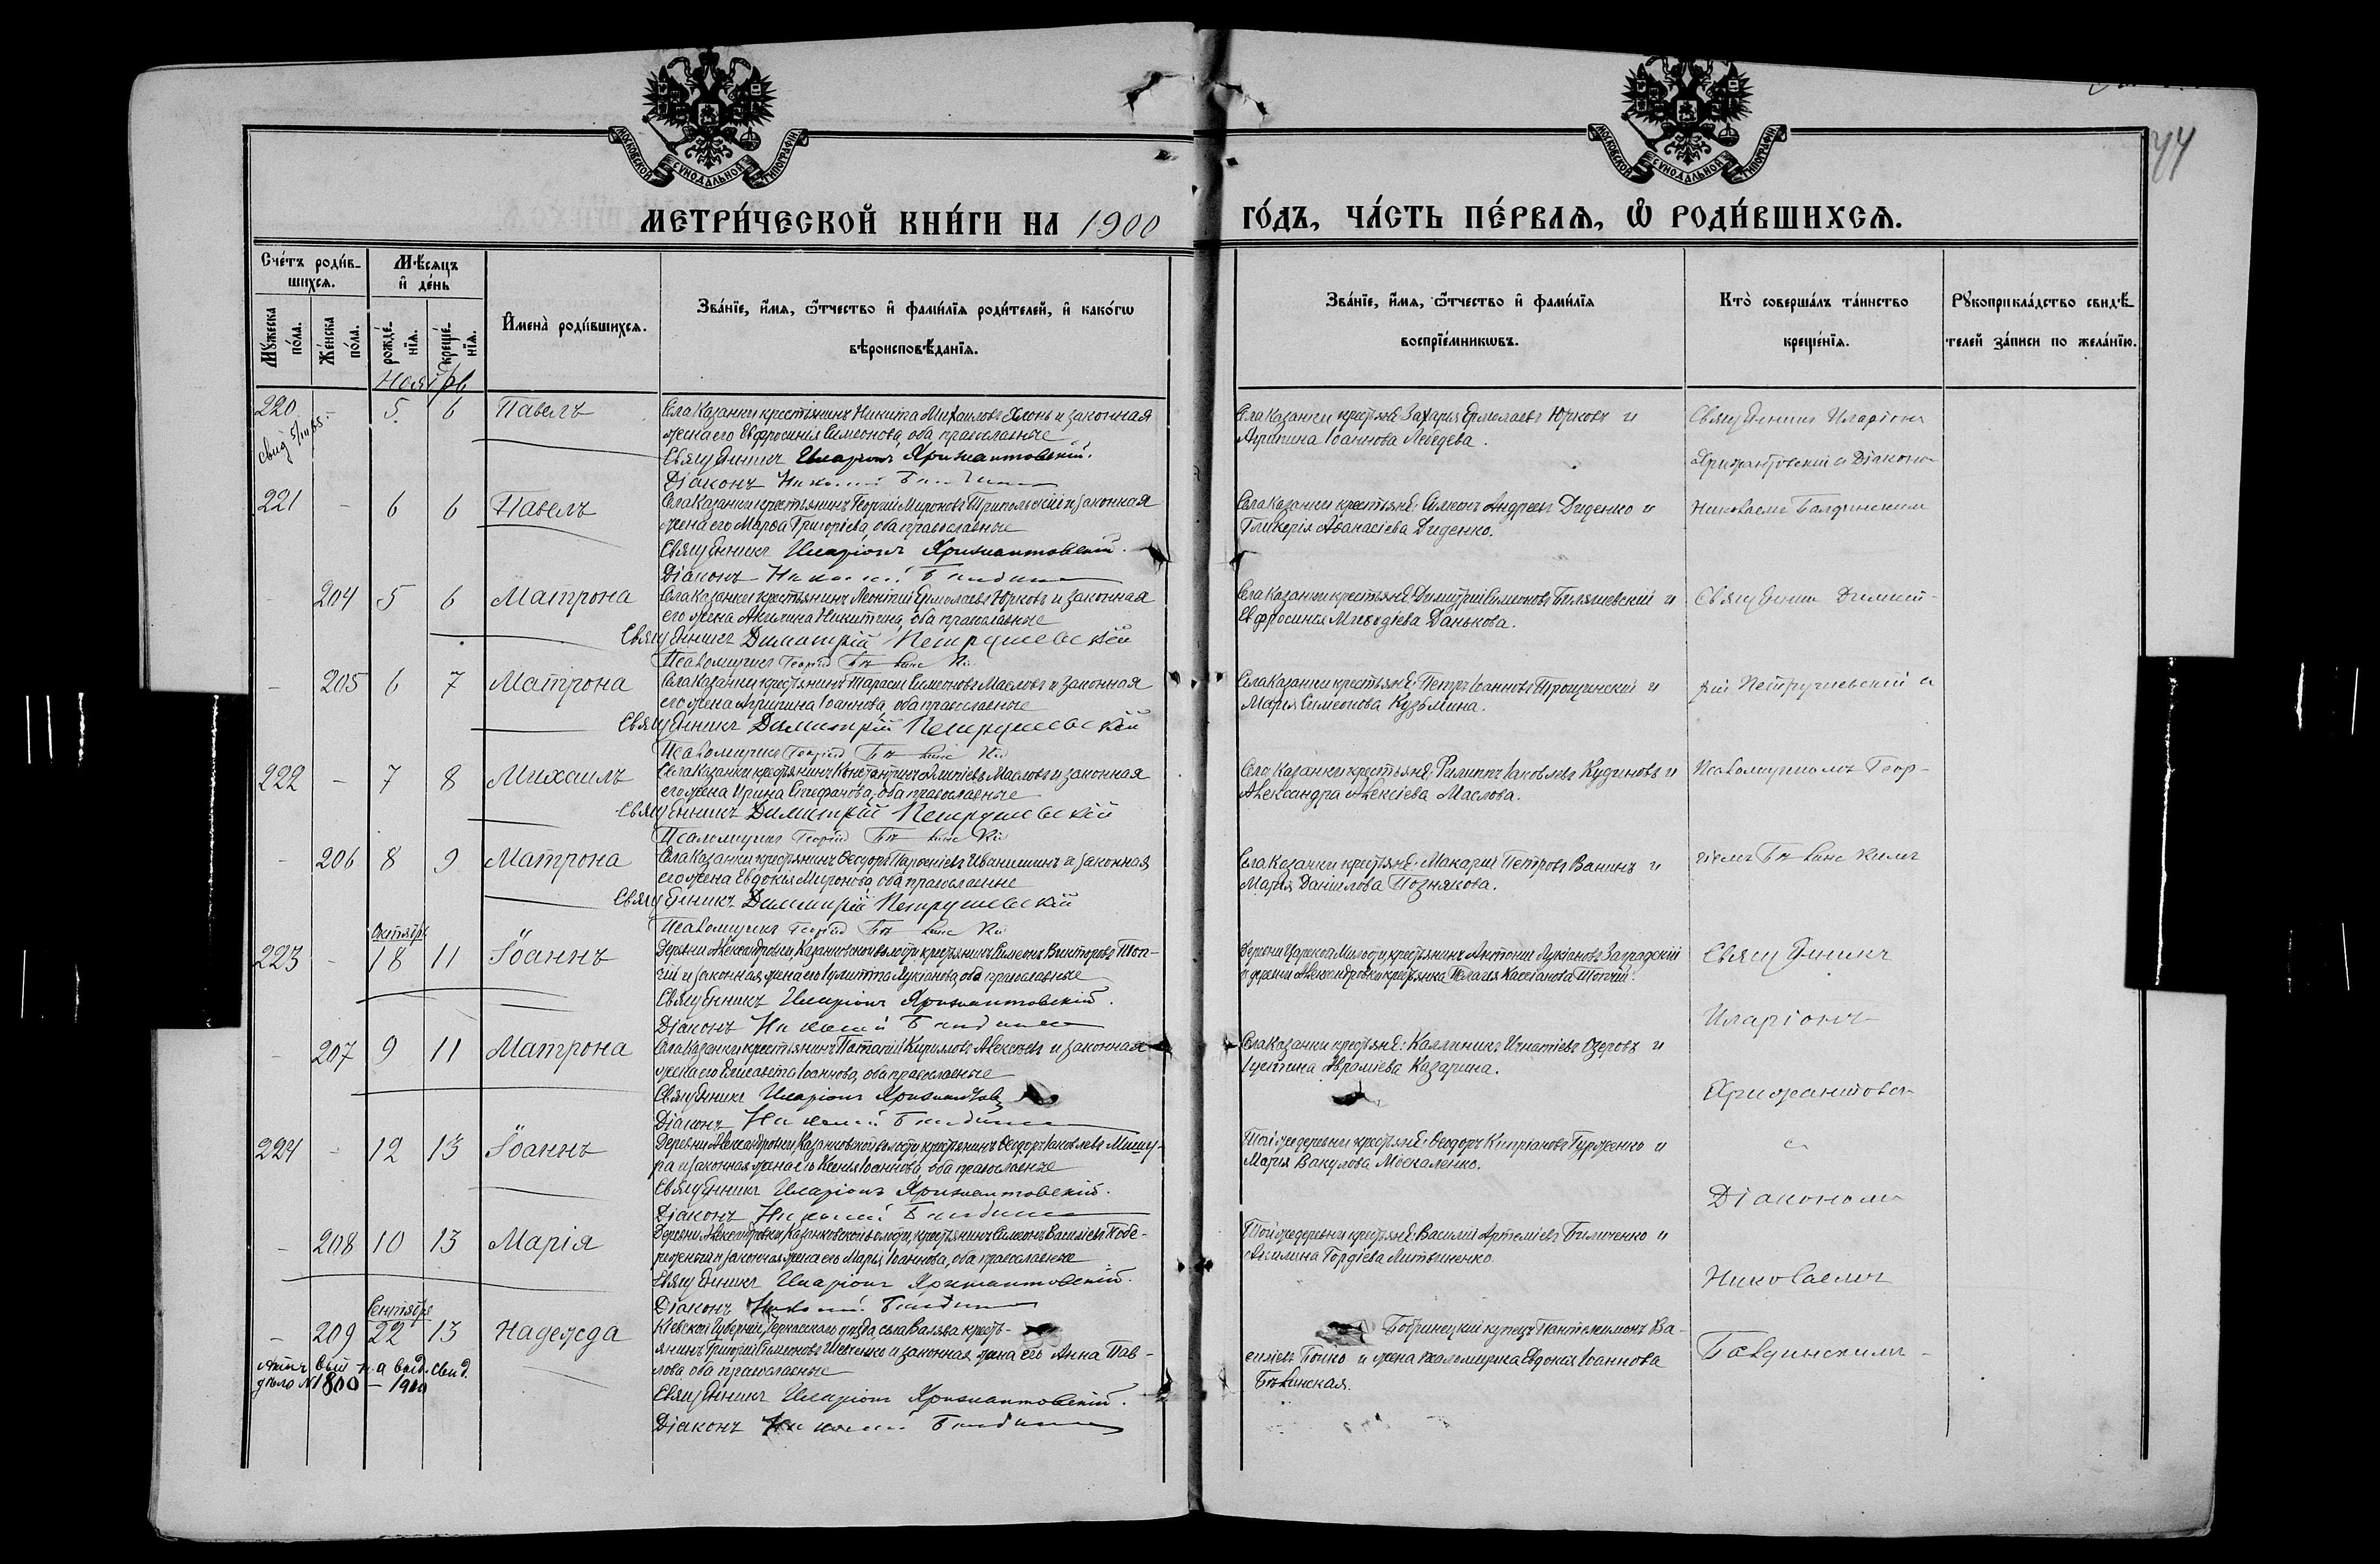 МОСКОВСКОЙ СѴНОДАЛЬНОЙ ТИПОГРАФІИ
МОСКОВСКОЙ СѴНОДАЛЬНОЙ ТИПОГРАФІИ
44
МЕТРИ́ЧЕСКОЙ КНИ́ГИ НА 1900
ГО́ДЪ, ЧА́СТЬ ПЕ́РВАѦ, Ѽ РОДИ́ВШИХСѦ.
Сче́тъ роди́в-
шихсѧ.
Мꙋжеска
по́ла.
Же́нска
по́ла.
Мѣ́сѧцъ
и де́нь
рожде́-
нїѧ.
креще́-
нїѧ.
Имена̀ роди́вшихсѧ.
Зва́нїе, и́мѧ, ѻ́тчество и фами́лїѧ роди́телей, и како́гѡ
вѣроисповѣ́данїѧ.
Зва́нїе, и́мѧ, ѻ́тчество и фами́лїѧ
воспрїе́мникѡвъ.
Кто̀ соверша́лъ та́инство
креще́нїѧ.
Рꙋкоприкла́дство свидѣ́-
телей за́писи по жела́нїю.
Ноябрь
220 - 5 6 Павелъ
Села Казанки крестьянинъ Никита Михаиловъ и законная
жена его Евфросинія Симеонова, оба православные
Священникъ Иларіонъ Хрисантовскій.
Діаконъ Николай
Села Казанки крестьяне Захарія Ермолаевъ Юрковъ и
Агрипина Іоаннова Лебедева.
Священникъ Иларіонъ
Хрисантовскій и Діаконъ
221 - 6 6 Павелъ
Села Казанки крестьянинъ Георгій Мироновъ Трипольскій и законная
жена его Марѳа Григоріева, оба православные
Священникъ Иларіонъ Хрисантовскій.
Діаконъ Николай
Села Казанки крестьяне: Симеонъ Андреевъ Диденко и
Гликерія Аѳанасіева Диденко.
Николаемъ
- 204 5 6 Матрона
Села Казанки крестьянинъ Леонтій Ермолаевъ Юрковъ и законная
его жена Акилина Никитина, оба православные
Священникъ Димитрій Петрушевскій
Псаломщикъ Георгій
Села Казанки крестьяне: Димитрій Симеоновъ Биляшевскій и
Евфросинія Меѳодіева Данькова.
Священник Димит-
- 205 6 7 Матрона
Села Казанки крестьянинъ Тарасій Симеоновъ Масловъ и законная
его жена Агрипина Іоаннова, оба православные
Священникъ Димитрій Петрушевскій
Псаломщикъ Георгій
Села Казанки крестьяне: Петръ Іоанновъ Трощинскій и
Марія Симеонова Кузьмина.
рій Петрушевскій и
222 - 7 8 Михаилъ
Села Казанки крестьянинъ Константинъ Масловъ и законная
его жена Ирина Стефанова, оба православные
Священникъ Димитрій Петрушевскій
Псаломщикъ Георгій
Села Казанки крестьяне: Филиппъ Іаковлевъ Кудиновъ и
Александра Алексіева Маслова.
Псаломщикомъ Геор-
- 206 8 9 Матрона
Села Казанки крестьянинъ Ѳеодоръ Парѳеніевъ Иванишинъ и законная
его жена Евдокія Миронова, оба православные
Священникъ Димитрій Петрушевскій
Псаломщикъ Георгій
Села Казанки крестьяне: Макарій Петровъ Ванинъ и
Марія Даніилова Познякова.
гіемъ
Октябрь
223 - 18 11 Іоаннъ
Деревни Александровки, Казанковской волости, крестьянинъ Симеонъ Викторовъ Топ-
чій и законная жена его Іулитта Лукіанова, оба православные
Священникъ Иларіонъ Хрисантовскій.
Діаконъ Николай
Деревни Царской Милости, крестьянинъ Антоній Лукіановъ Заградскій
и деревни Александровки крестьянка Пелагія Кассіанова Топчій.
Священникъ
Иларіонъ
- 207 9 11 Матрона
Села Казанки крестьянинъ Патапій Кирилловъ Алексѣевъ и законная
жена его Елисавета Іоаннова, оба православные
Священникъ Иларіонъ
Діаконъ Николай
Села Казанки крестьяне: Каллиникъ Игнатіевъ Озеровъ и
Іустина Авраміева Казарина.
224 - 12 13 Іоаннъ
Деревни Александровки, Казанковской волости крестьянинъ Ѳеодоръ Іаковлевъ Мишу-
ра и законная жена его Ксенія Іоаннова, оба православные
Священникъ Иларіонъ Хрисантовскій.
Діаконъ Николай
Той же деревни крестьяне: Ѳеодоръ Кипріановъ Гурженко и
Марія Вакулова Москаленко.
и
Діакономъ
- 208 10 13 Марія
Деревни Александровки, Казанковской волости, крестьянинъ Симеонъ Василіевъ
и законная жена его Марія Іоаннова, оба православные
Священникъ Иларіонъ Хрисантовскій.
Діаконъ Николай
Той же деревни крестьяне: Василій Артеміевъ Биличенко и
Акилина Гордіева Литвиненко.
Николаемъ
Сентябрь
- 209 22 13 Надежда
Кіевской Губерніи, Черкасскаго уѣзда, села Валява кресть-
янинъ Григорій Симеоновъ Шевченко и законная жена его Анна Пав-
лова оба православные
Священникъ Иларіонъ Хрисантовскій.
Діаконъ Николай
Бобринецкій купецъ Пантелеимонъ Ва-
силіевъ Бойко и жена псаломщика Евдокія Іоаннова
дѣло № 1800 - 1900